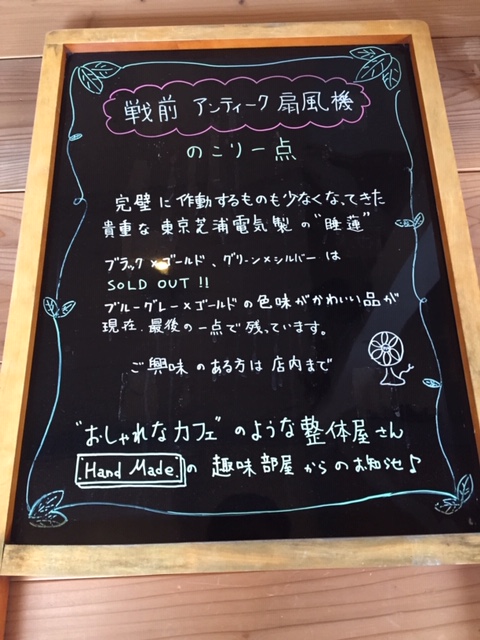 戦前 アンティーク 扇風機
のこり一点
完璧に作動するものも少なくなってきた
貴重な 東京芝浦電気製の "睡蓮"
ブラック×ゴールド、グリーン×シルバー は
SOLD OUT !!
ブルーグレー×ゴールドの色味がかわいい品が
現在、最後の一点で残っています。
ご興味のある方は 店内まで
"おしゃれなカフェ" のような 整体屋さん
Hand Made の 趣味部屋 からのお知らせ♪